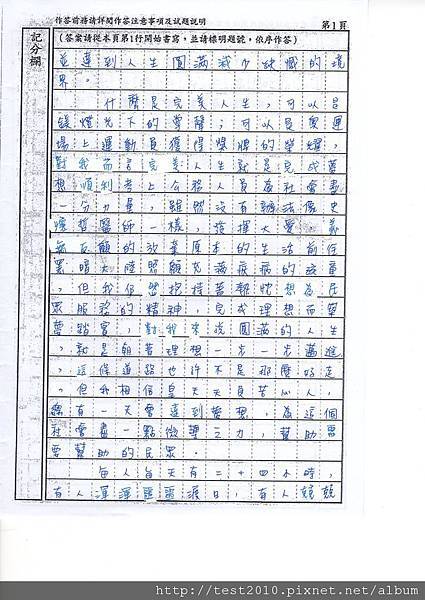 作答前務請詳閱作答注意事項及試題說明
第1頁
記分欄
（答案請從本頁第1行開始書寫，並請標明題號，依序作答）
並達到人生圓滿減少缺憾的境
界。
什麼是完美人生，可以是
鎂燈光下的掌聲；可以是奧運
場上運動員獲得獎牌的榮耀，
對我而言完美人生就是完成夢
想順利考上公務人員為社會盡
一分力量，雖然沒有辦法像史
懷哲醫師一樣，選擇大愛，義
無反顧的放棄原本的生活前往
黑暗大陸照顧充滿疾病的孩童
，但我仍然抱持著熱忱想為民
眾服務的精神，完成理想而築
夢踏實，對我來說圓滿的人生
，就是朝著理想一步一步邁進
，這條道路也許不是那麼好走
，但我相信皇天不負苦心人，
總有一天會達到夢想，為這個
社會盡一點微薄之力，幫助需
要幫助的民眾。
每人每天有二十四小時，
有人渾渾噩噩渡日，有人兢兢
http://test2010.pixnet.net/album